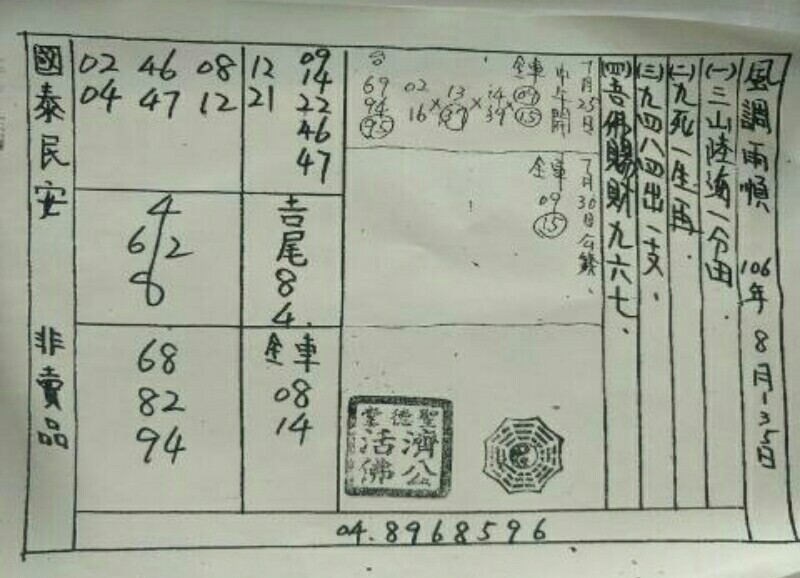 風調雨順 106年 8月1-3-5日
(一)三山陸海一分田
(二)九死一生再、
(三)九四八四出一支、
(四)吾佛賜財九六七、
7月25日
中午開
全車
09
15
14
39
13
97
02
16
合
69
94
95
7月30日公錢、
全車
09
15
聖德堂
濟公
活佛
12 09
14
21 22
46
47
吉尾
8
4
全車
08
14
02 46 08
04 47 12
4
6/2
8
68
82
94
國泰民安 非賣品
04.8968596